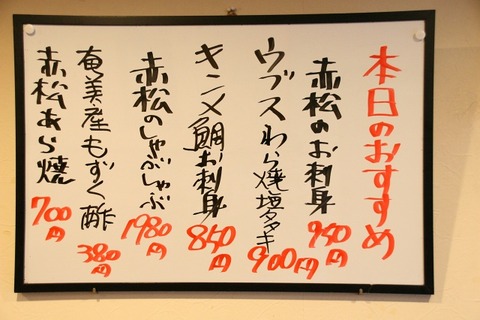 本日のおすすめ
赤松のお刺身
940円
ウブスわら焼塩タタキ
900円
キンメ鯛お刺身
840円
赤松のしゃぶしゃぶ
1980円
奄美産もずく酢
380円
赤松あら焼
700円